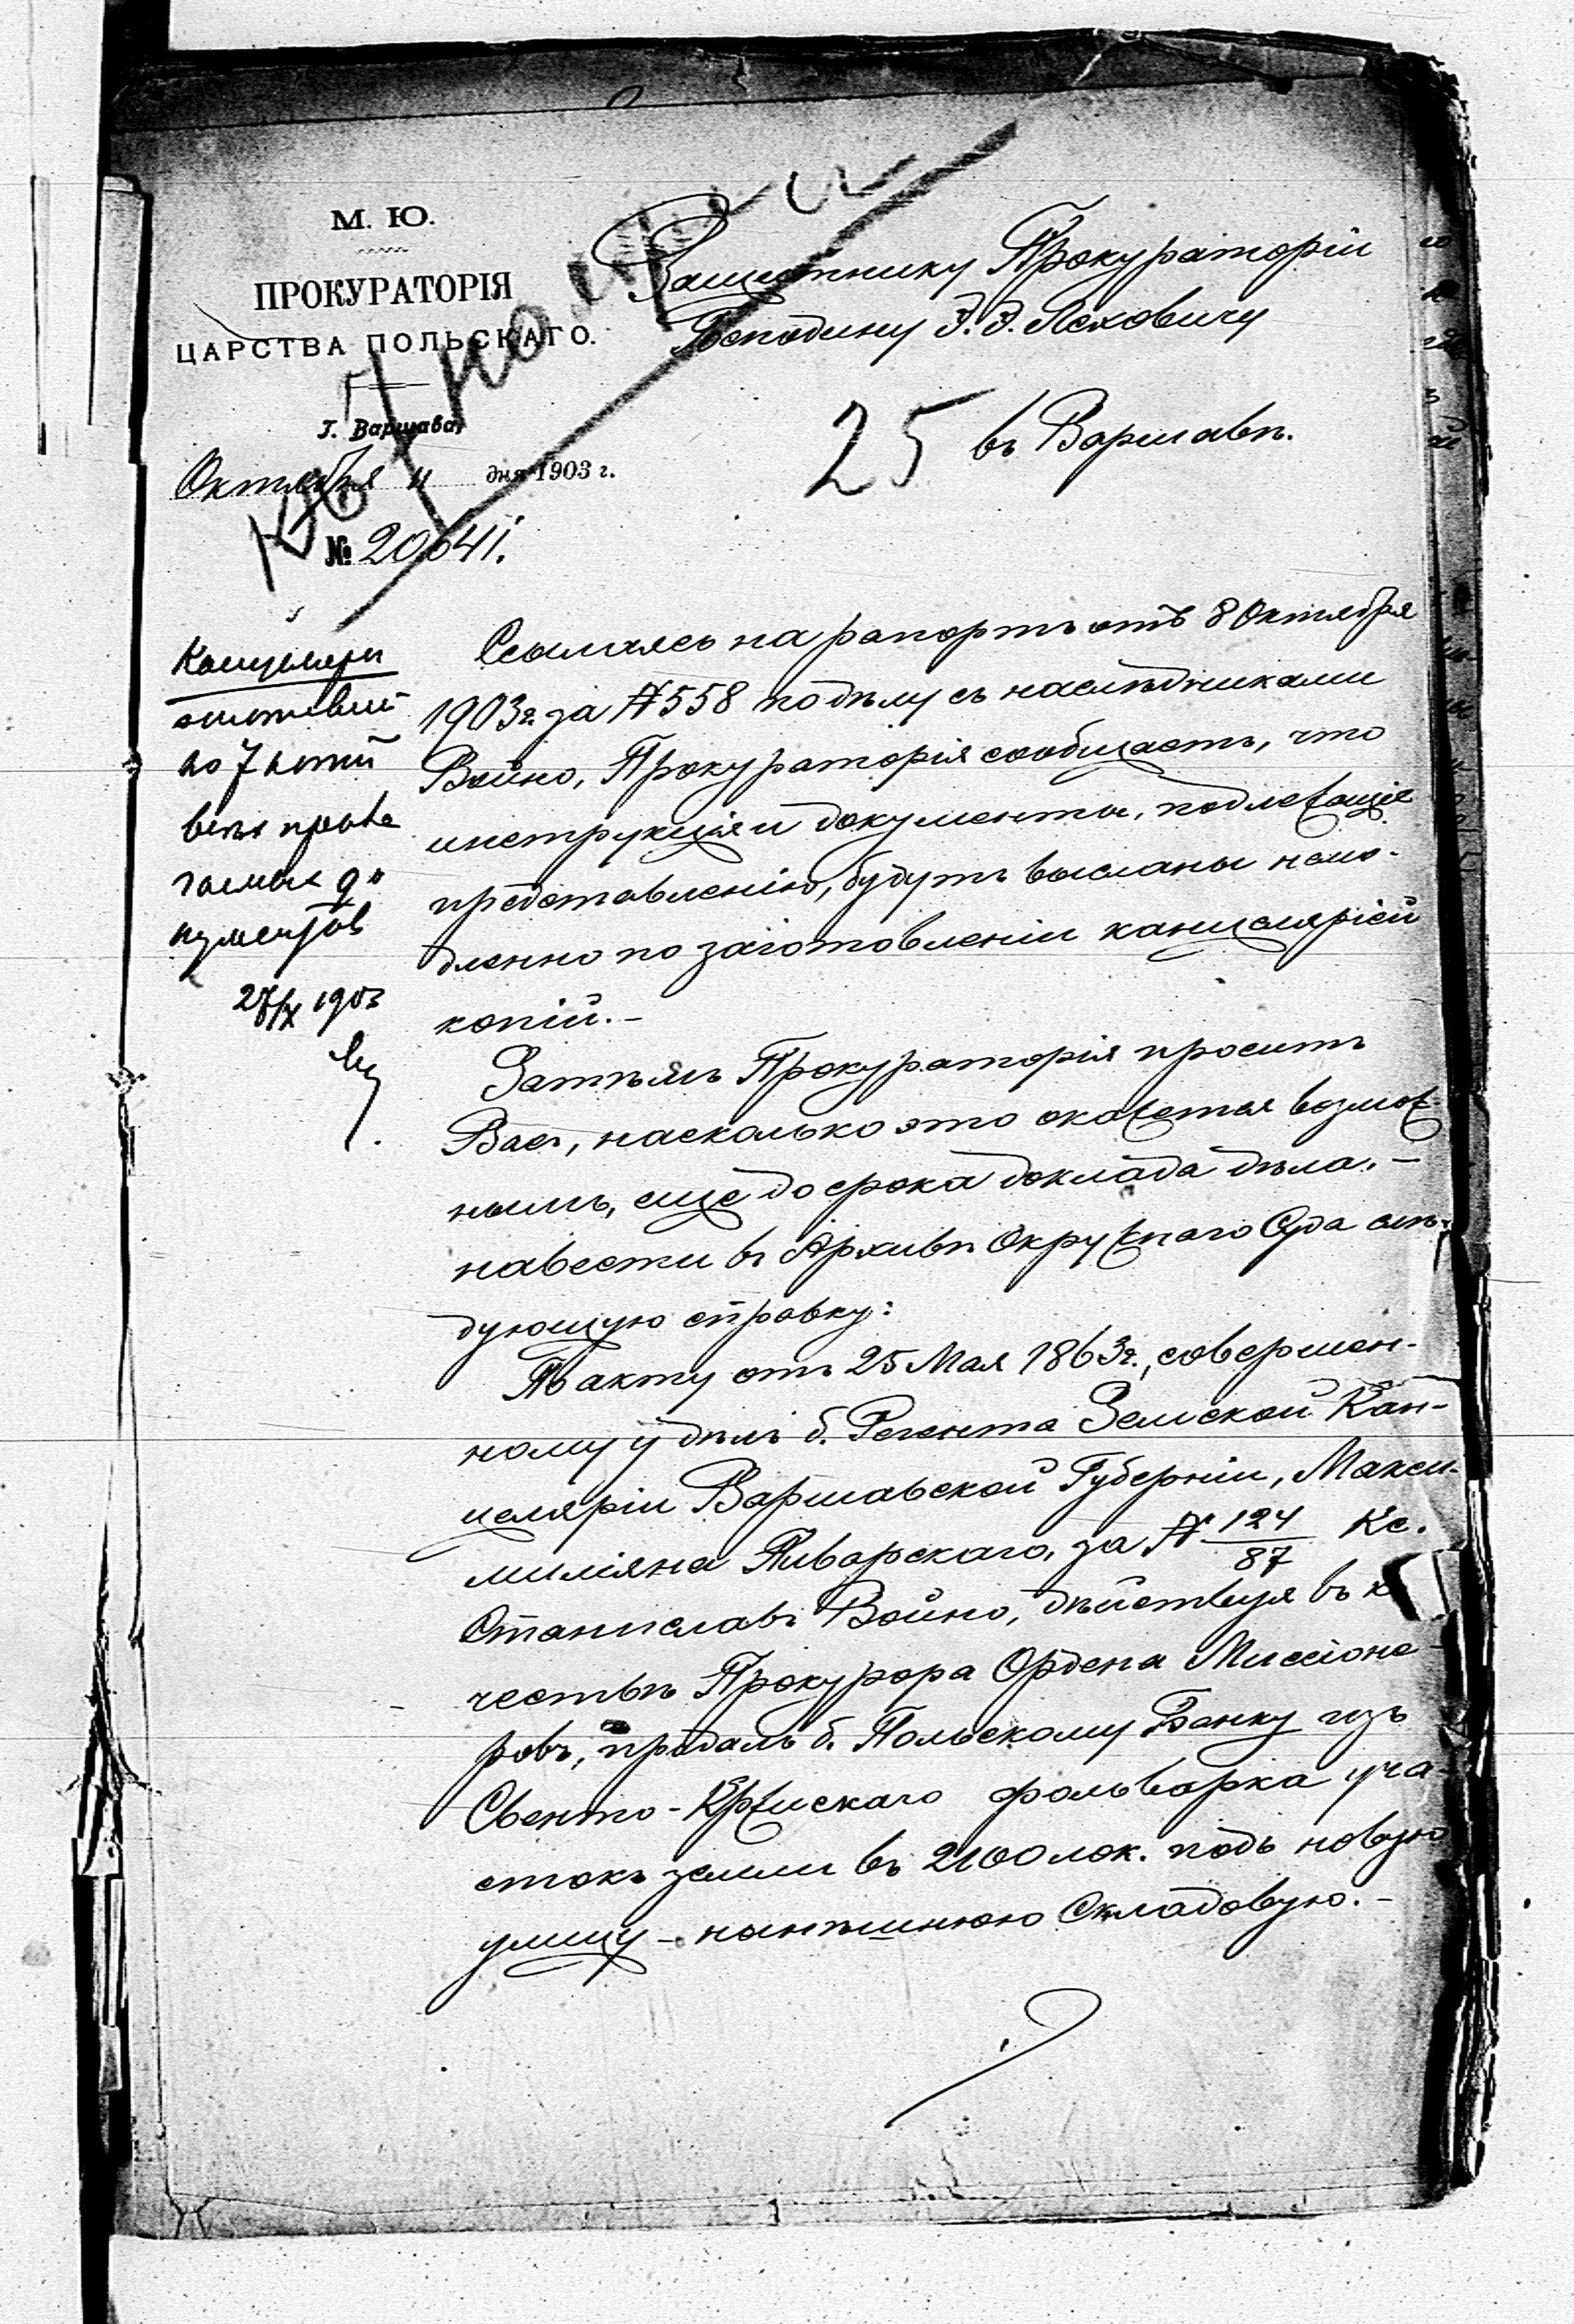 М. Ю.
ПРОКУРАТОРІЯ
ЦАРСТВА ПОЛЬСКАГО.
г. Варшава,
Октября 11 дня 1903 г.
№ 20641.
Защитнику Прокураторіи
Господину Э. Э. Леховичу
25 въ Варшавѣ.
Канцеляріи
по 7 копій
всѣхъ прила
гаемыхъ до
кументовъ
27/X 1903
Ссылаясь на рапортъ отъ 8 Октября
1903 г. за № 558 по дѣлу съ наслѣдниками
Войно, Прокураторія сообщаетъ, что
инструкція и документы, подлежащіе
представленію, будутъ высланы неме-
дленно по заготовленіи канцеляріей
копій.-
Затѣмъ Прокураторія проситъ
Васъ, насколько это окажется возмож-
нымъ, еще до срока доклада дѣла, -
навести въ Архивѣ Окружнаго Суда слѣ-
дующую справку:
По акту отъ 25 Мая 1863 г., совершен-
ному у дѣлъ б. Регента Земской Кан-
целяріи Варшавской Губерніи, Макси-
миліяна Пиварскаго, за № 124/87 Кс.
Станиславъ Войно, дѣйствуя въ ка
чествѣ Прокурора Ордена Миссіоне-
ровъ, продалъ б. Польскому Банку изъ
Свенто-Кржискаго фольварка уча-
стокъ земли въ 2100 лок. подъ новую
улицу - нынѣшнюю Складовую.-